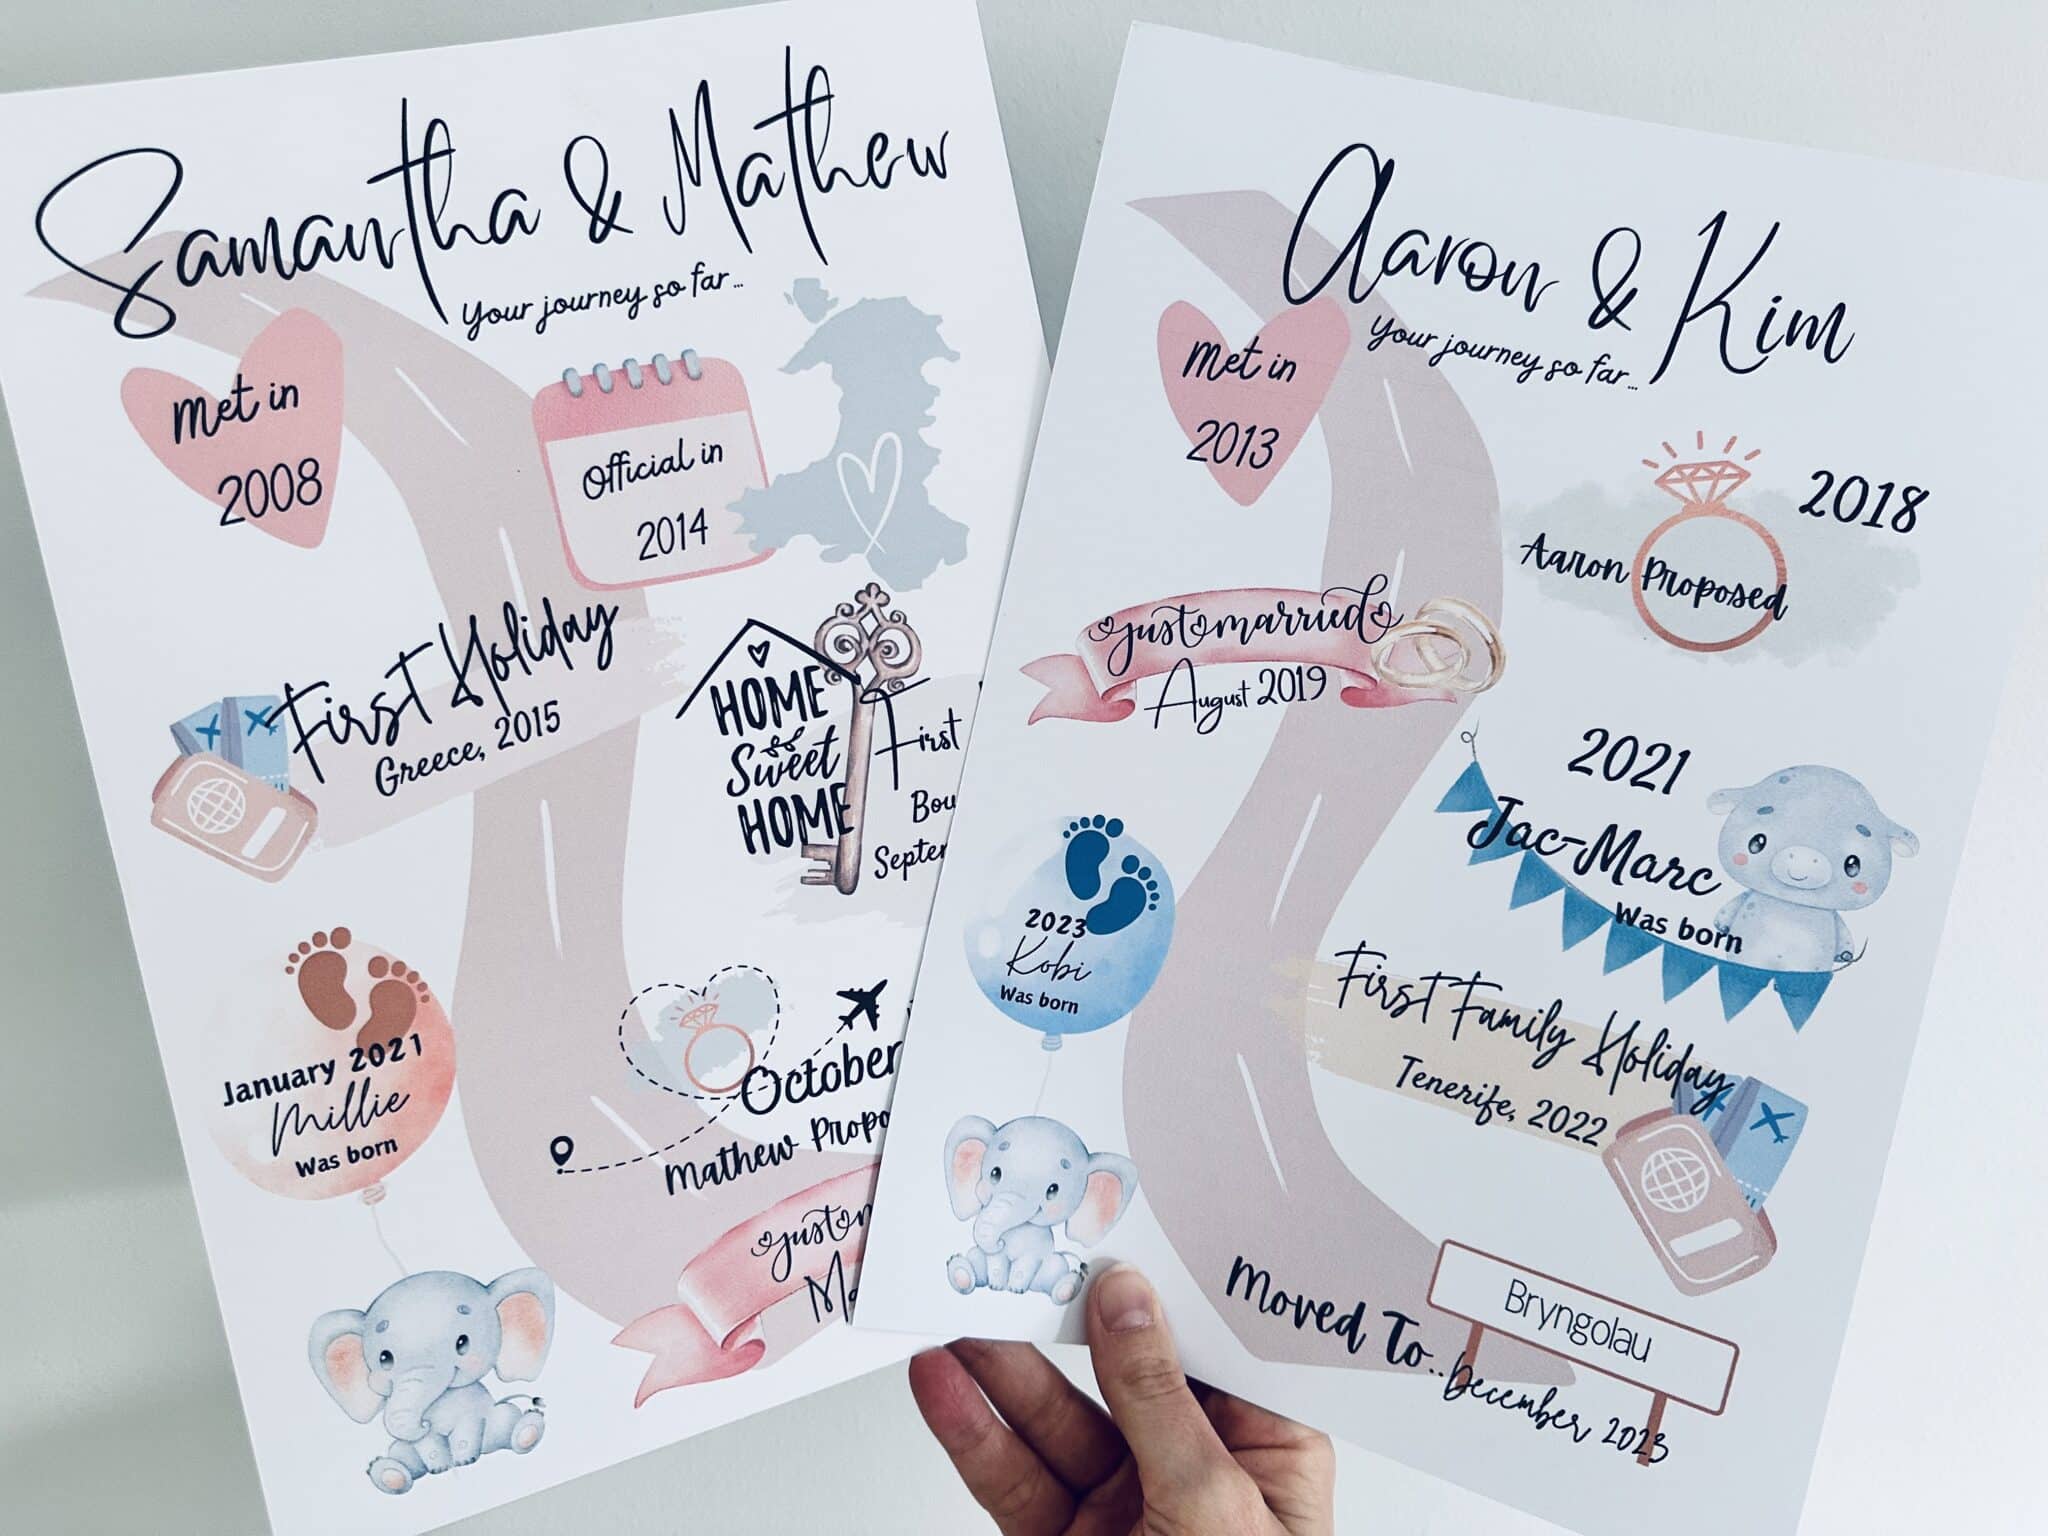 Samantha & Mathew
Your journey so far...
Met in
2008
Official in
2014
First Holiday
Greece, 2015
HOME
Sweet
HOME
First
January 2021
Millie
Was born
October
Mathew
Aaron & Kim
Your journey so far...
Met in
2013
2018
Aaron Proposed
just married
August 2019
2021
Jac-Marc
Was born
2023
Kobi
Was born
First Family Holiday
Tenerife, 2022
Moved To..
Bryngolau
December 2023